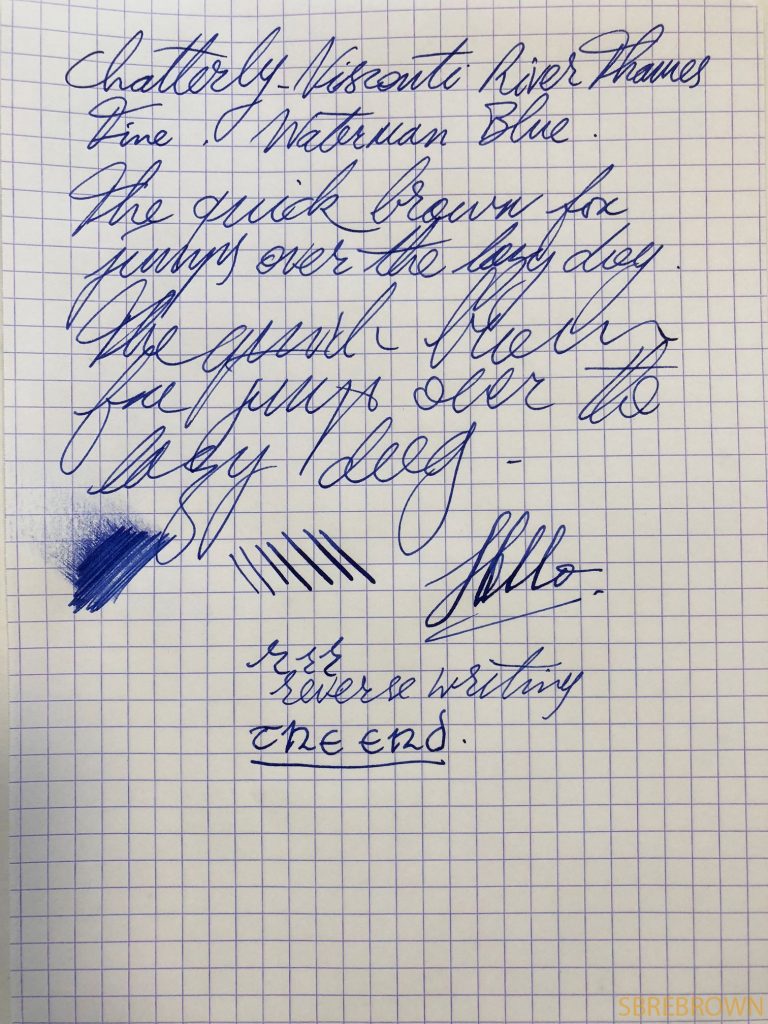 Chatterly - Visconti River Thames
Fine . Waterman Blue .
The quick brown fox
jumps over the lazy dog .
The quick
fox jumps over the
lazy dog -
Hello .
r r r r
reverse writing
THE END .
SBREBROWN